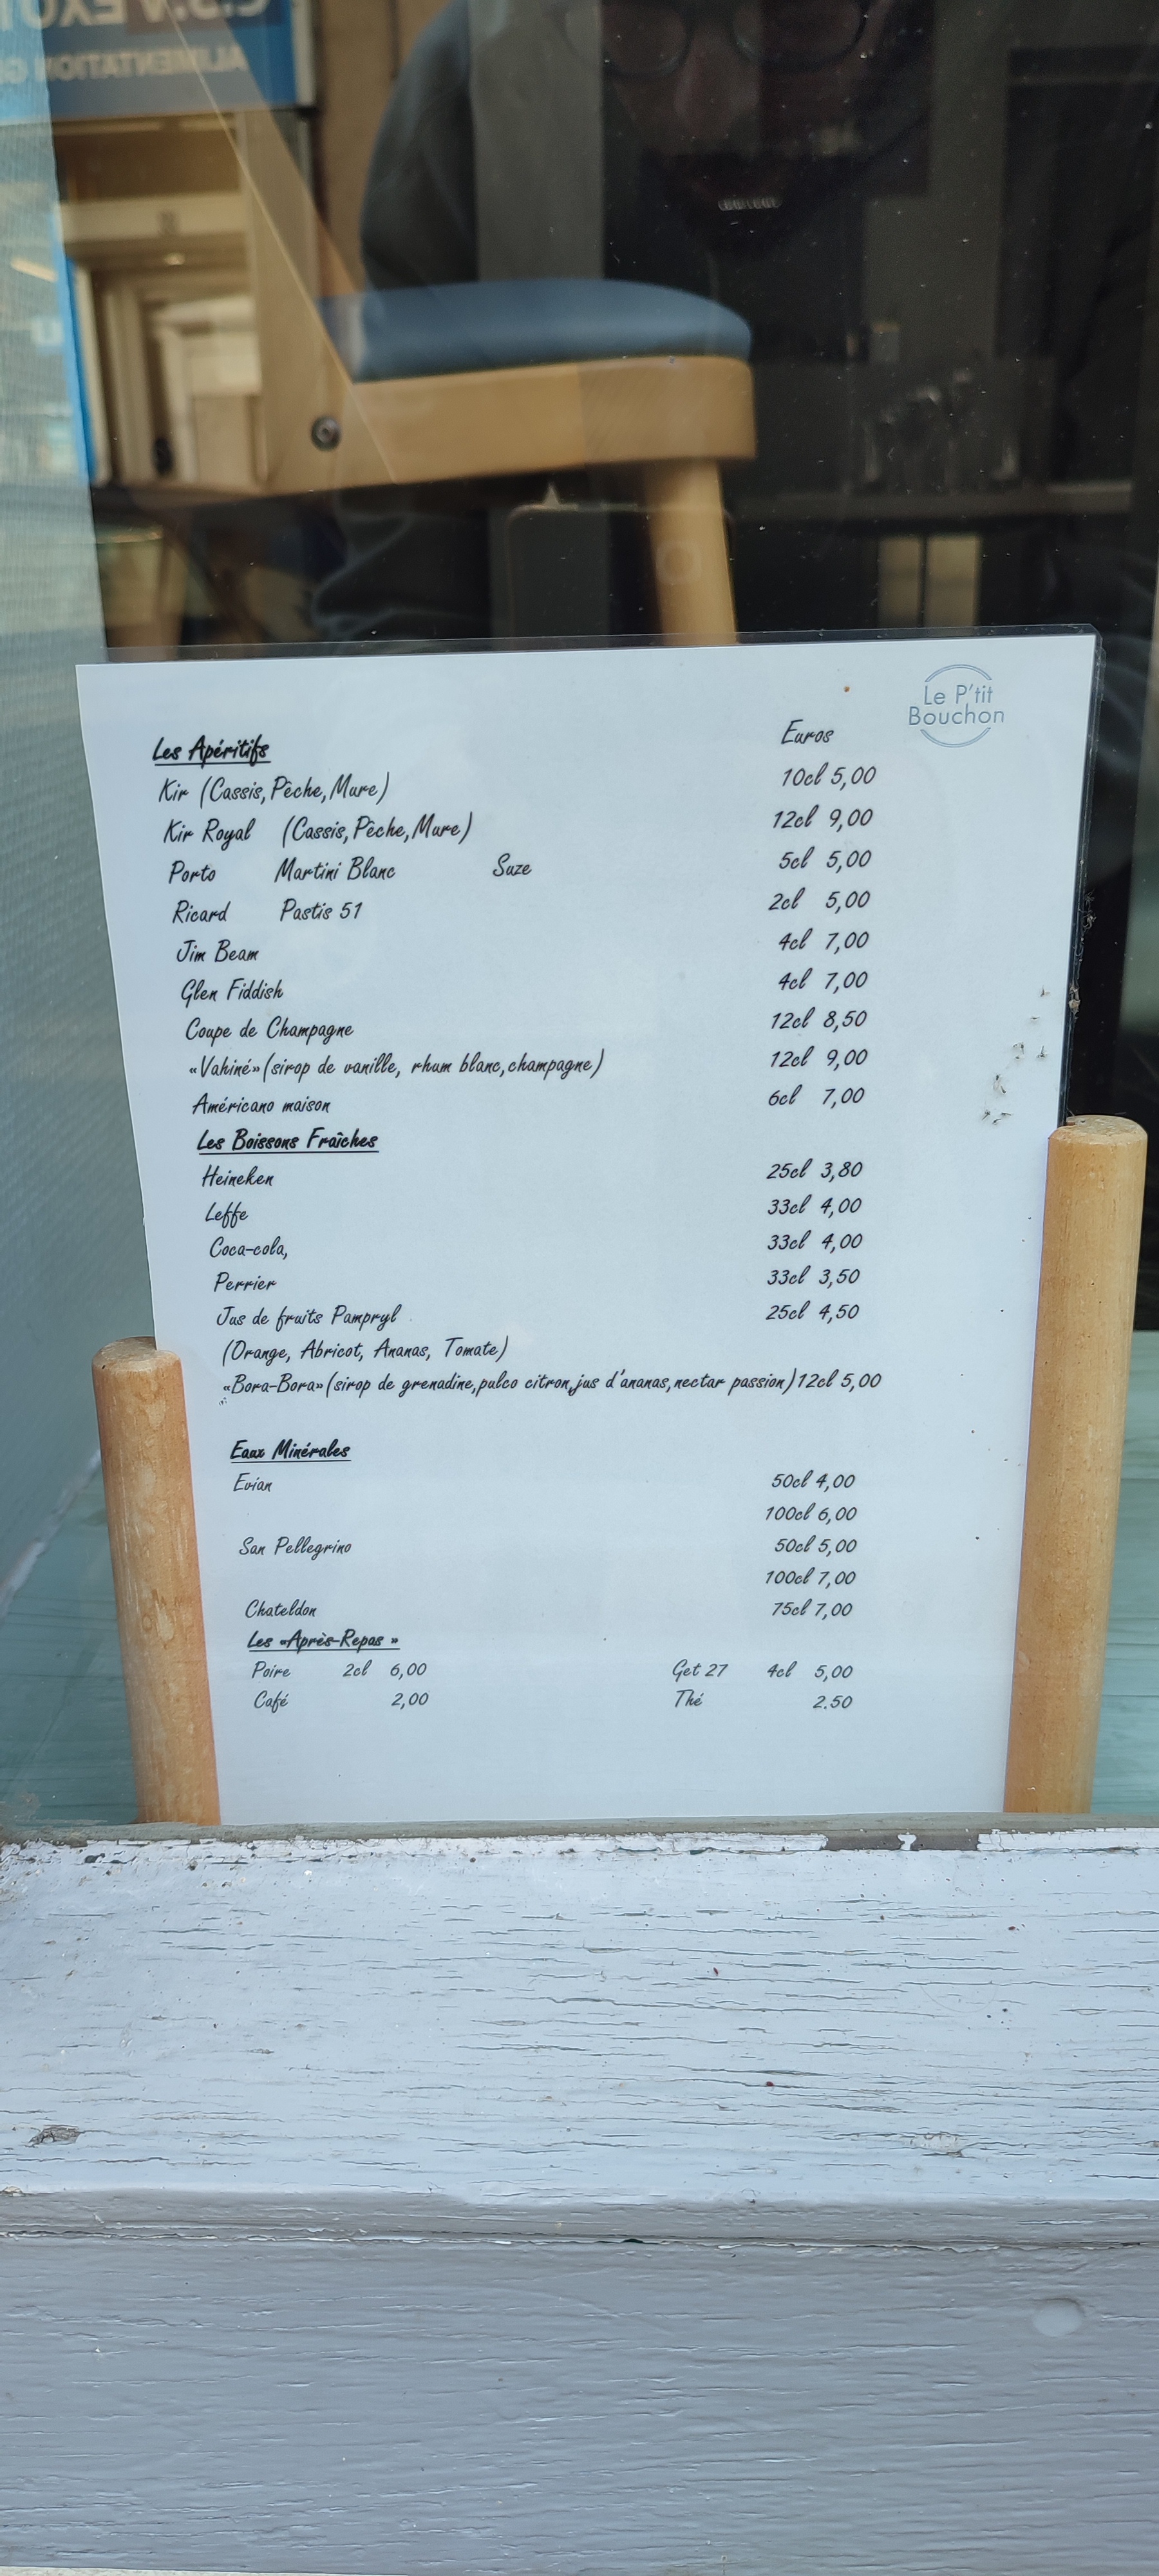 C.S.V EXOT
ALIMENTATION G
Le P'tit
Bouchon
Euros
Les Apéritifs
Kir (Cassis, Pêche, Mure) 10cl 5,00
Kir Royal (Cassis, Pêche, Mure) 12cl 9,00
Porto Martini Blanc Suze 5cl 5,00
Ricard Pastis 51 2cl 5,00
Jim Beam 4cl 7,00
Glen Fiddish 4cl 7,00
Coupe de Champagne 12cl 8,50
«Vahiné»(sirop de vanille, rhum blanc,champagne) 12cl 9,00
Américano maison 6cl 7,00
Les Boissons Fraîches
Heineken 25cl 3,80
Leffe 33cl 4,00
Coca-cola, 33cl 4,00
Perrier 33cl 3,50
Jus de fruits Pampryl 25cl 4,50
(Orange, Abricot, Ananas, Tomate)
«Bora-Bora»(sirop de grenadine,pulco citron,jus d'ananas,nectar passion)12cl 5,00
Eaux Minérales
Evian 50cl 4,00
100cl 6,00
San Pellegrino 50cl 5,00
100cl 7,00
Chateldon 75cl 7,00
Les «Après-Repas »
Poire 2cl 6,00 Get 27 4cl 5,00
Café 2,00 Thé 2.50